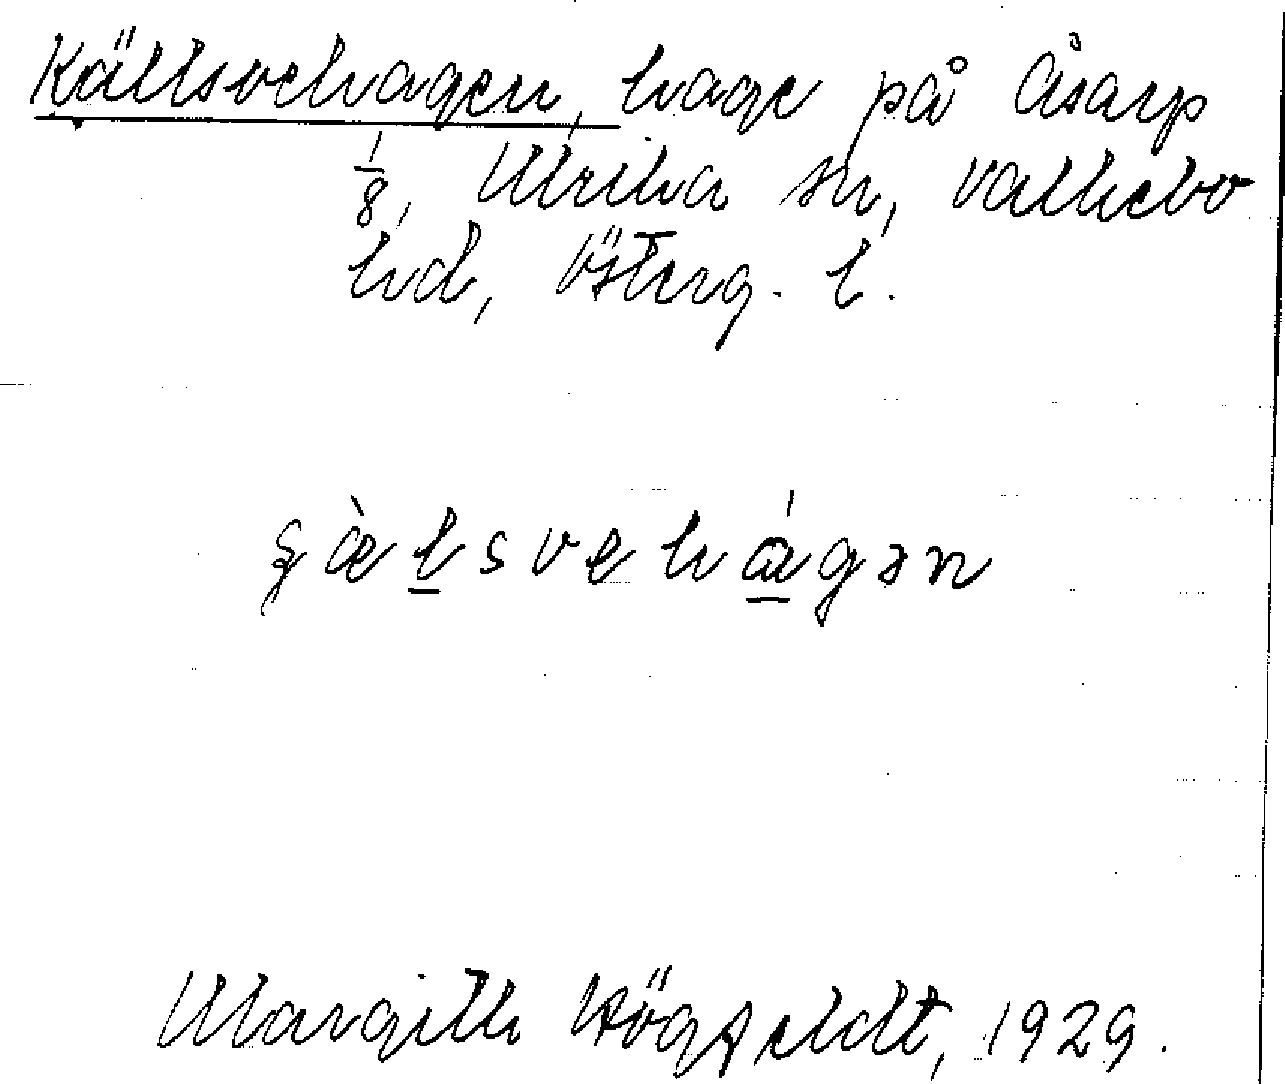 Källsvehagen, hage på Åsarp
1/8, Ulrika sn, Valkebo
hd, Österg. l.
ʂæ̀lsvehágən
Margith Högfeldt, 1929.